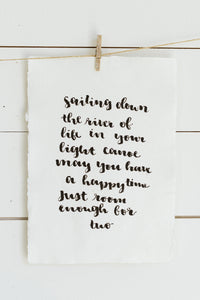 sailing down
the river of
life in your
light canoe
may you have
a happy time
Just room
enough for
two